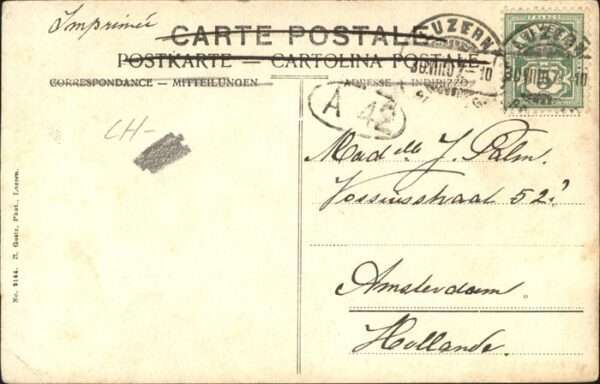 Imprimé
CARTE POSTALE
POSTKARTE — CARTOLINA POSTALE
CORRESPONDANCE - MITTEILUNGEN
ADRESSE - INDIRIZZO
LUZERN
30.VII.07-10
LUZERN
30.VII.07- 10
FRANCO
5
A 42
CH-
Mad lle J. Palm.
Vossiusstraat 52?
Amsterdam
Hollande.
No. 2144. E. Goetz, Phot., Luzern.